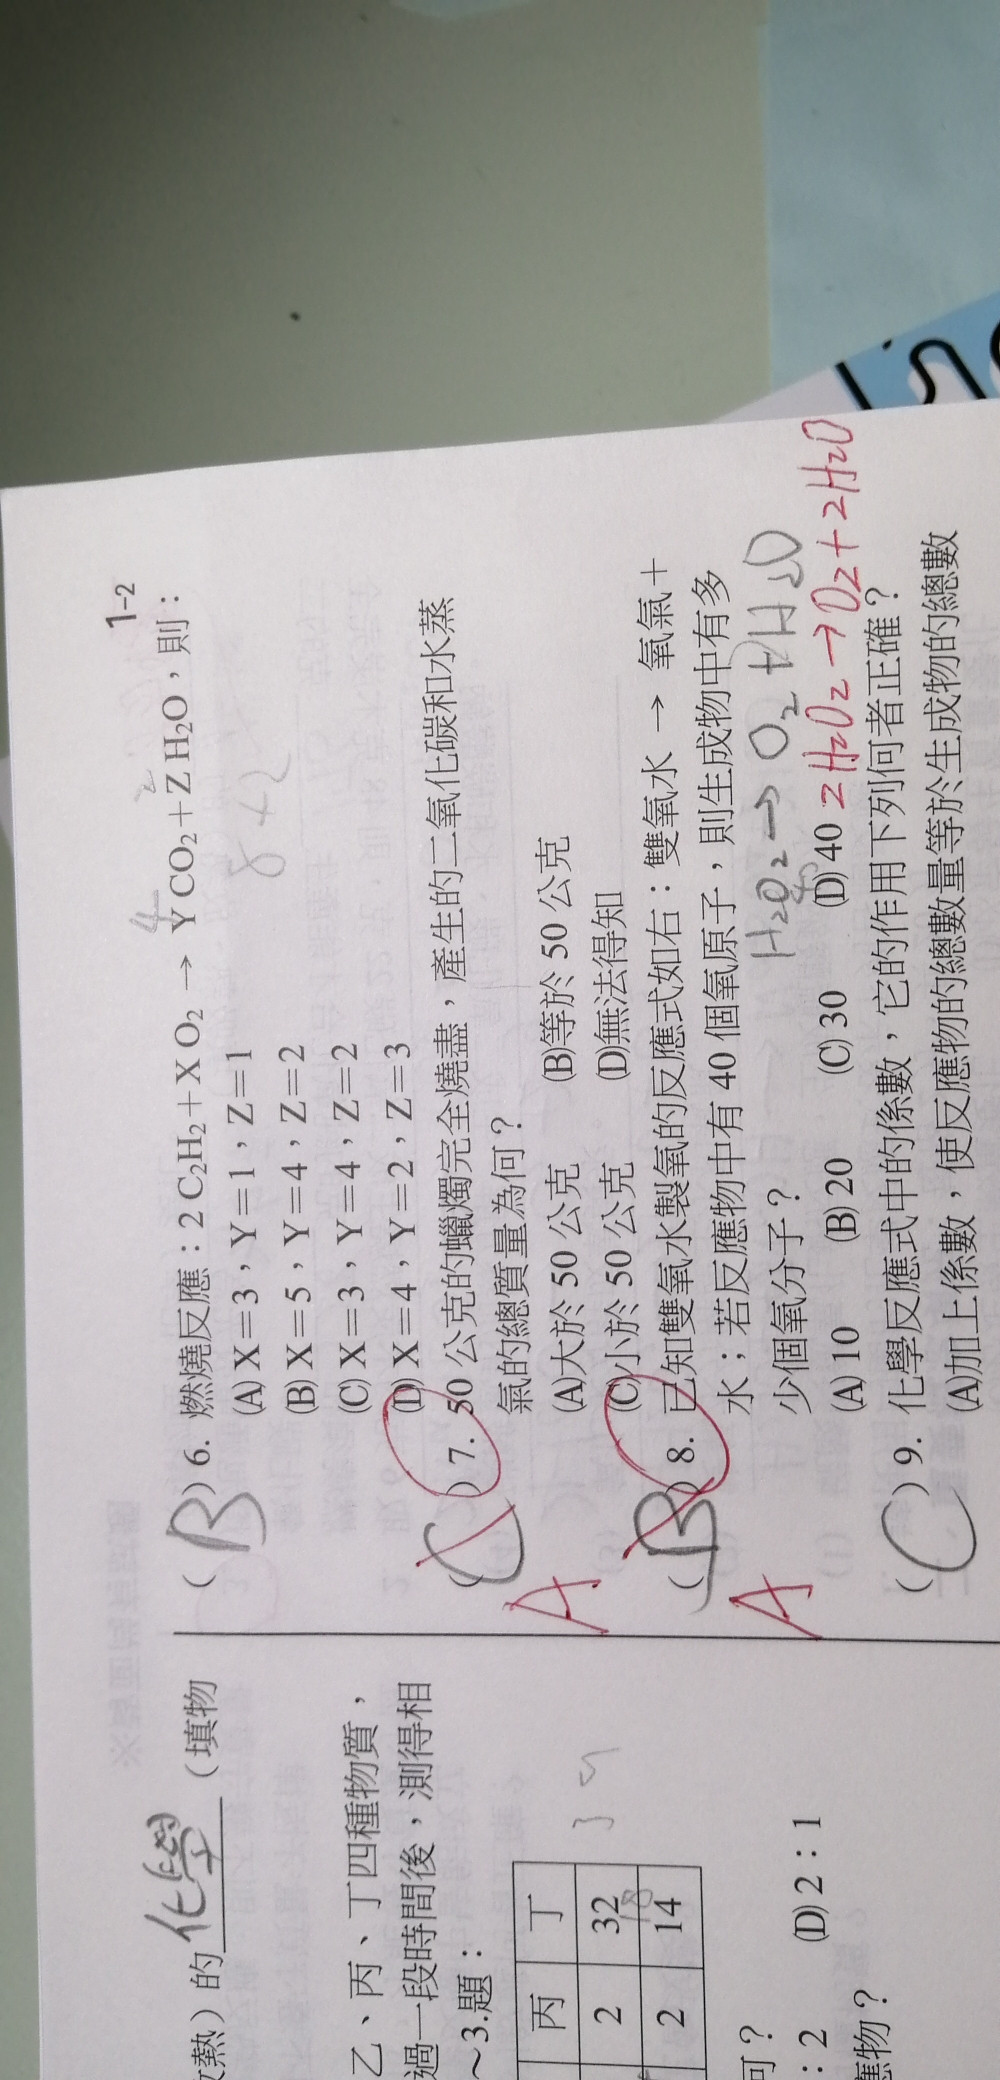 1-2
(B) 6. 燃燒反應：2 C₂H₂＋X O₂ → Y CO₂＋Z H₂O，則：
4 2
8+2
(A) X＝3，Y＝1，Z＝1
(B) X＝5，Y＝4，Z＝2
(C) X＝3，Y＝4，Z＝2
(D) X＝4，Y＝2，Z＝3
(C) 7. 50 公克的蠟燭完全燒盡，產生的二氧化碳和水蒸
氣的總質量為何？
A
(A)大於 50 公克 (B)等於 50 公克
(C)小於 50 公克 (D)無法得知
(B) 8. 已知雙氧水製氧的反應式如右：雙氧水 → 氧氣＋
水；若反應物中有 40 個氧原子，則生成物中有多
少個氧分子？
A
H₂O₂ → O₂ + H₂O
(A) 10 (B) 20 (C) 30 (D) 40
2H₂O₂ → O₂ + 2H₂O
(C) 9. 化學反應式中的係數，它的作用下列何者正確？
(A)加上係數，使反應物的總數量等於生成物的總數
放熱）的 化學 （填物
乙、丙、丁四種物質，
過一段時間後，測得相
～3.題：
丙 丁
2 32
18
2 14
何？
：2 (D) 2：1
應物？